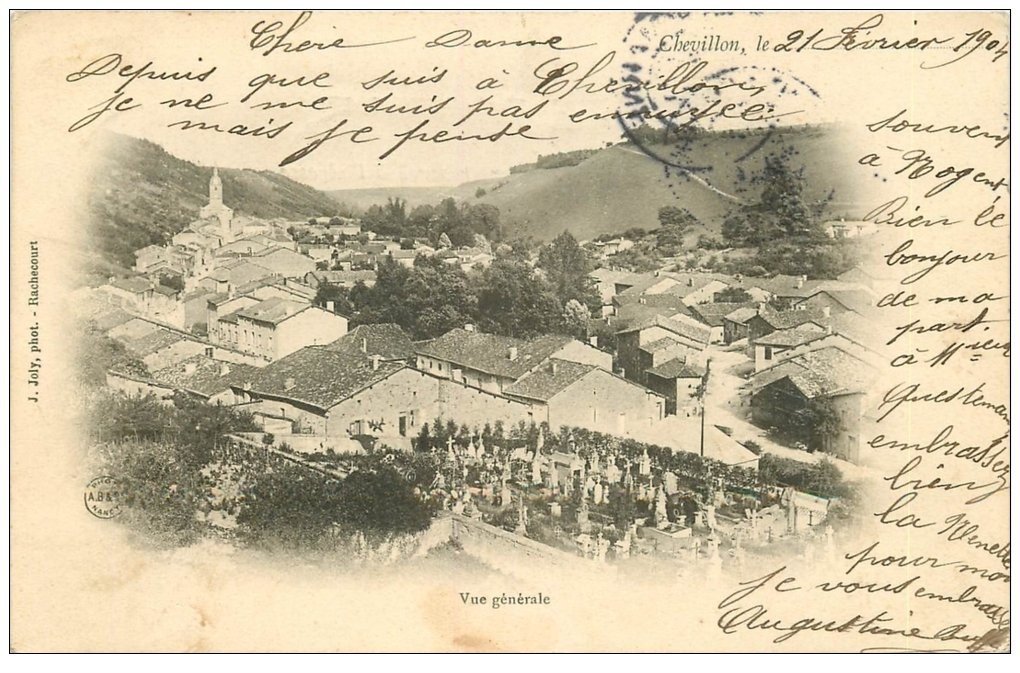 Chevillon, le 21 Février 1904
Chère Dame
Depuis que suis à Chevillon,
je ne me suis pas ennuyée
mais je pense
souvent
à Nogent
Bien le
bonjour
de ma
part.
à Mr
embrassez
bien
la
pour moi
je vous embrasse
Augustine
J. Joly, phot. - Rachecourt
A.B&
NANCY
Vue générale